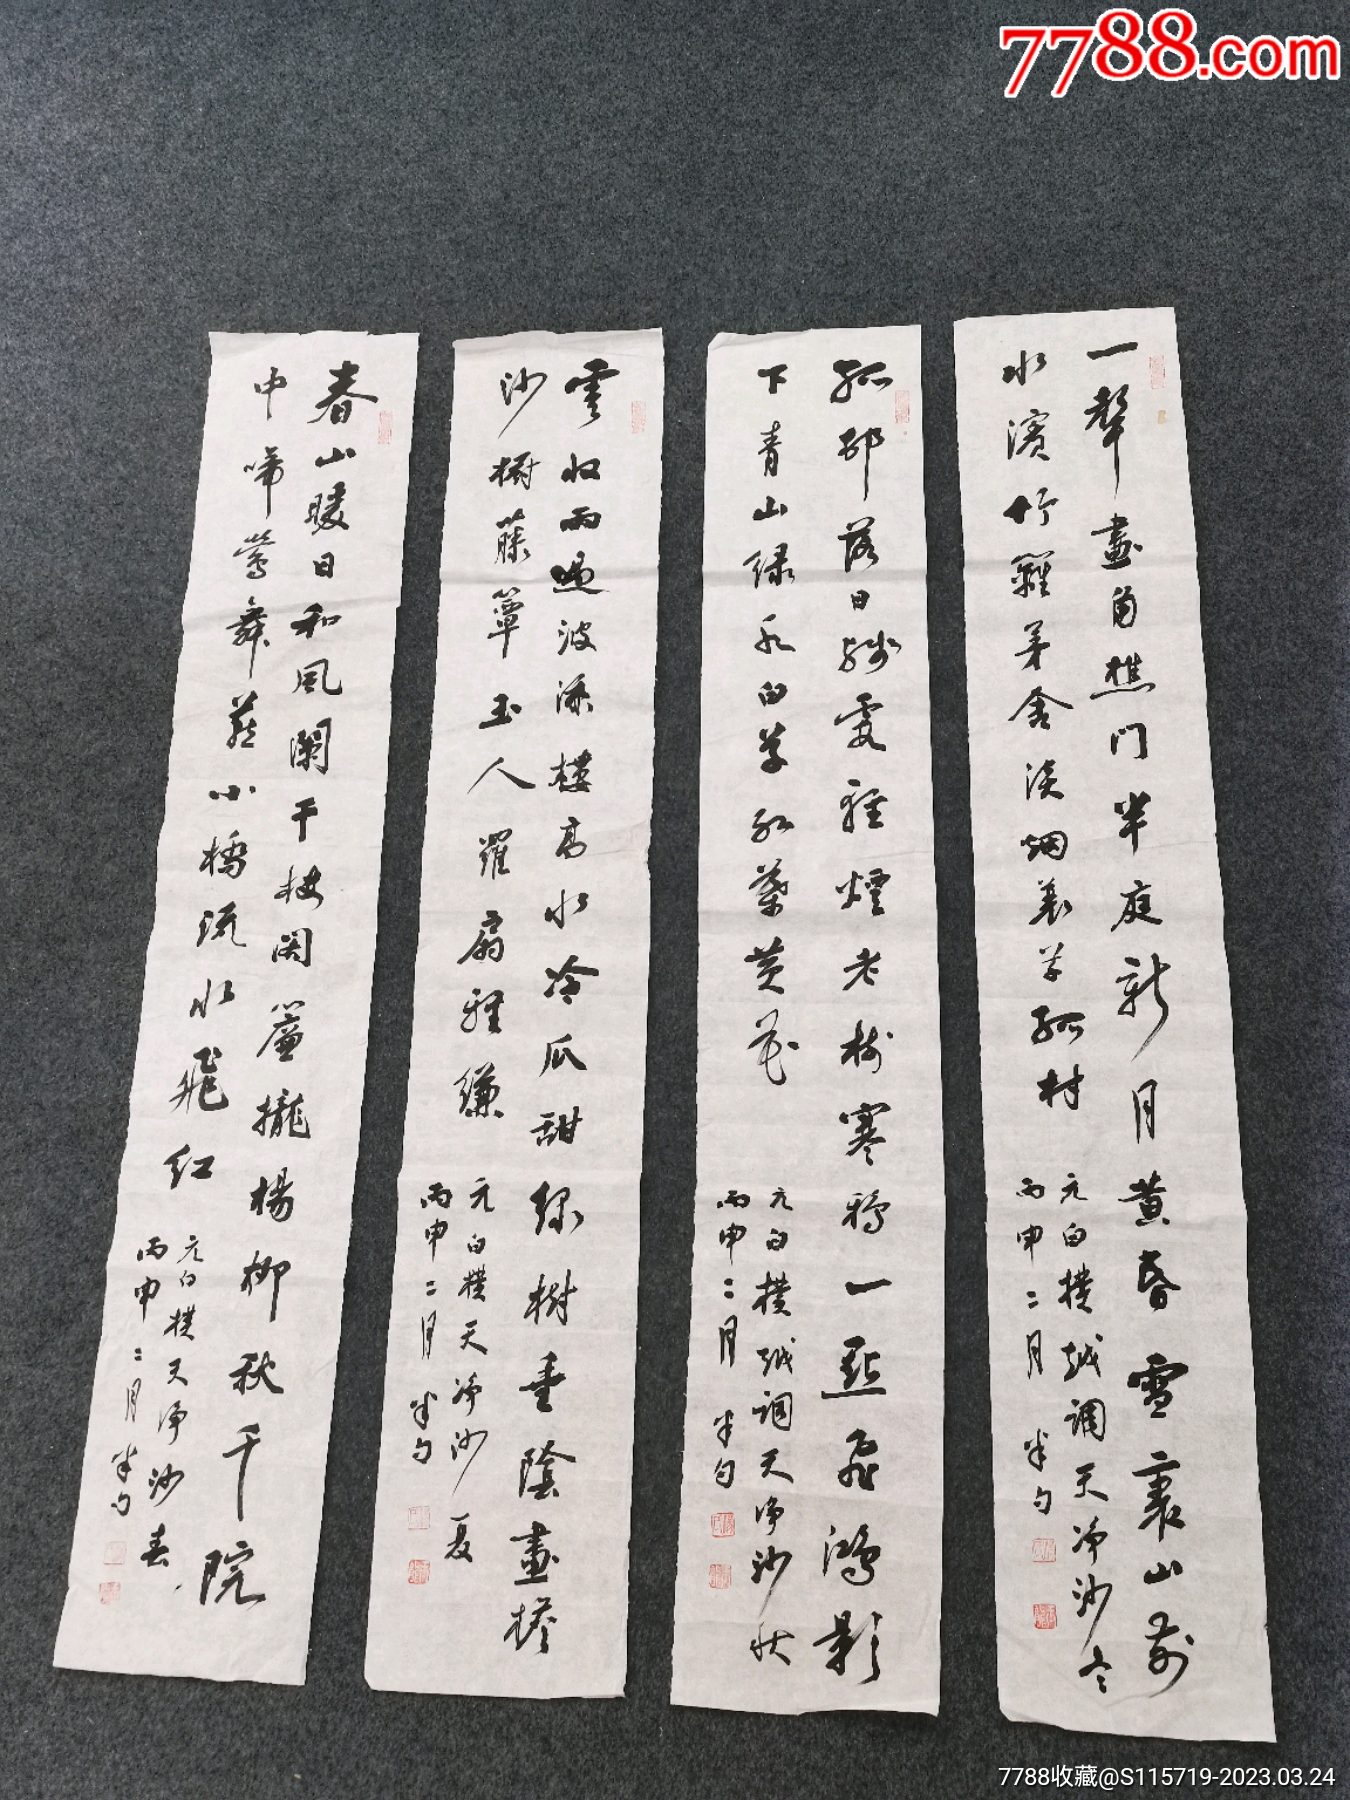 7788.com
春山暖日和風闌干楼閣簾攏楊柳秋千院
中啼鶯舞燕小橋流水飛红
元白樸天净沙春
丙申二月半勺
雲收雨過波添樓高水冷瓜甜绿樹垂陰畫檐
沙橱藤簟玉人羅扇輕縑
元白樸天净沙夏
丙申二月半勺
孤邨落日残霞輕煙老树寒鸦一點飛鴻影
下青山绿水白草红葉黄花
元白樸越調天净沙秋
丙申二月半勺
一聲畫角樵門半庭新月黄昏雪裏山前
水濱竹籬茅舍淡烟衰草孤村
元白樸越調天净沙冬
丙申二月半勺
7788收藏@S115719-2023.03.24